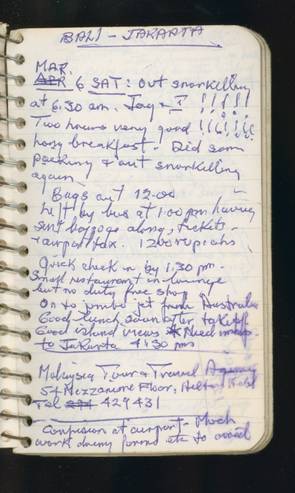 BALI - JAKARTA
MAR.
APR 6 SAT: Out snorkelling
at 6.30 am. Jay & I !!!!!!
Two hours very good !!!!!!
hong breakfast. Did some
packing & out snorkelling
again
Bags out 12-00
Left by bus at 1:00 pm having
sent baggage along, tickets -
& airport tax. 1200 rupiahs
Quick check in by 1.30 pm.
Small restaurant in lounge
but no duty free shop
On to jumbo jet from Australia
Good lunch soon after takeoff
Good island views
to Jakarta 4:30 pm
Malaysia Tour & Travel Agency
54 Mezzanine Floor, Hilton Hotel
Tel 429431
Confusion at airport - Much
work doing forms etc to avoid